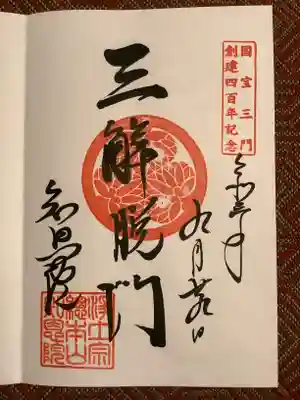 國宝三門
創建四百年記念
令和三年
九月
三解脱門
知恩院
浄土宗
總本山
知恩院